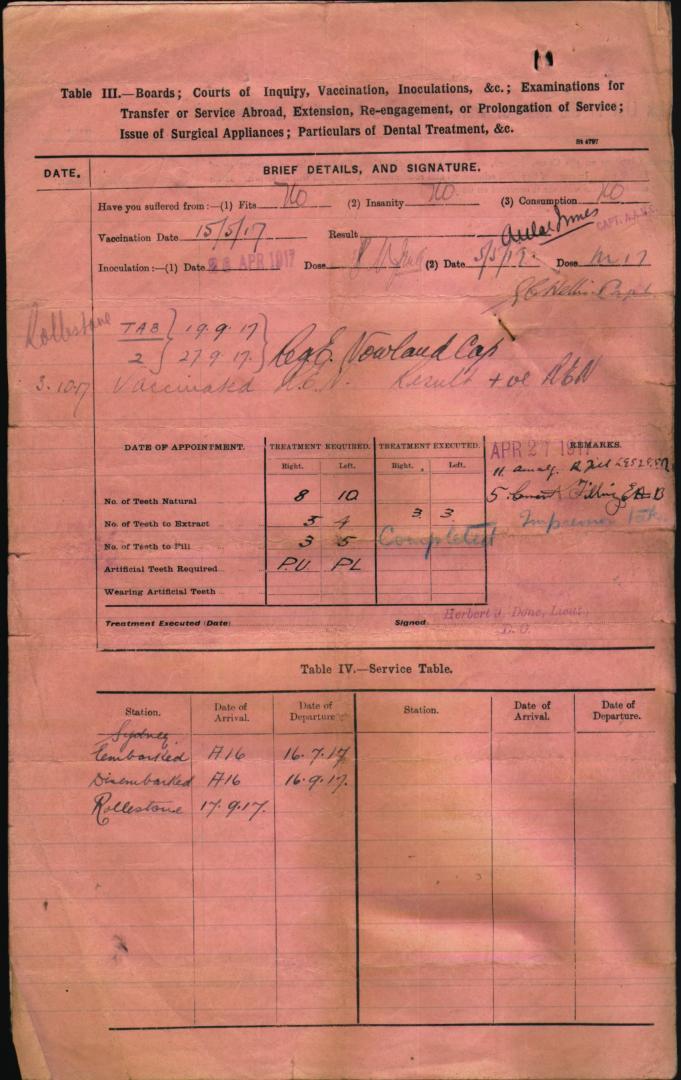 Table III.—Boards; Courts of Inquiry, Vaccination, Inoculations, &c.; Examinations for
Transfer or Service Abroad, Extension, Re-engagement, or Prolongation of Service;
Issue of Surgical Appliances; Particulars of Dental Treatment, &c.
St 4797
DATE. BRIEF DETAILS, AND SIGNATURE.
Have you suffered from:—(1) Fits No (2) Insanity No (3) Consumption No
Vaccination Date 15/5/17 Result CAPT. A.A.M.C.
Inoculation:—(1) Date APR 1917 Dose (2) Date 5/5/17 Dose
Capt.
Rollestone TAB } 19.9.17 }
2 } 27.9.17. } Reg E. Nowland Cap
3.10.17 Vaccinated R.E.N. Result +ve REN
DATE OF APPOINTMENT. TREATMENT REQUIRED. TREATMENT EXECUTED. APR 27 191 REMARKS.
Right. Left. Right. Left. 11 amalg.
No. of Teeth Natural 8 10 5 Filling
No. of Teeth to Extract 5 4 3 3 Impression
No. of Teeth to Fill 3 5 Completed
Artificial Teeth Required P.U P.L
Wearing Artificial Teeth
Treatment Executed (Date) Signed Herbert J. Done, Lieut.,
D.O.
Table IV.—Service Table.
Station. Date of Arrival. Date of Departure. Station. Date of Arrival. Date of Departure.
Sydney
Embarked A16 16.7.17
Disembarked A16 16.9.17.
Rollestone 17.9.17.